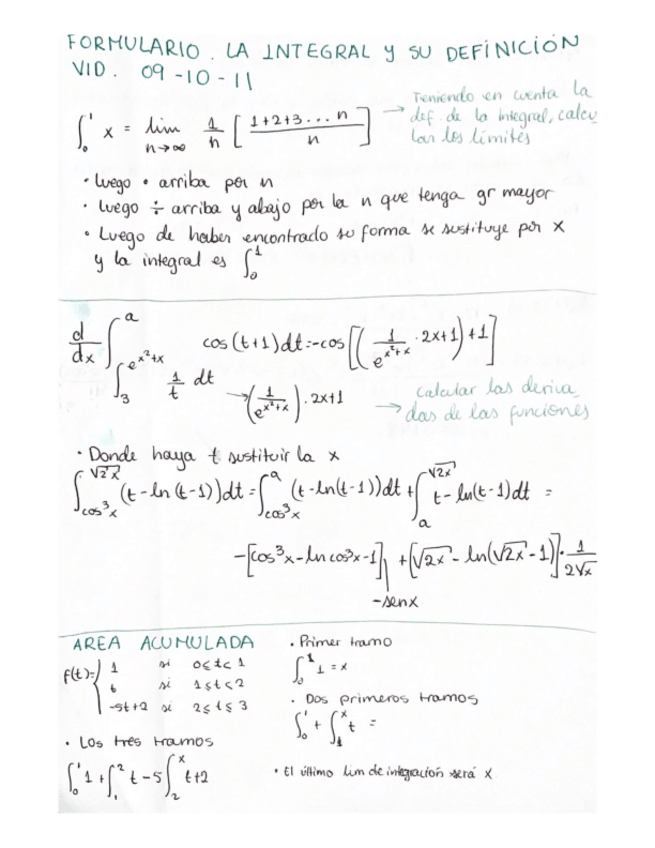 FORMULARIO. LA INTEGRAL y SU DEFINICIÓN
VID. 09-10-11
∫₀¹ x = lim n→∞ 1/n [ (1+2+3...n)/n ]
→ Teniendo en cuenta la
def. de la integral, calcu
lar los límites
· Luego · arriba por n
· Luego ÷ arriba y abajo por la n que tenga gr mayor
· Luego de haber encontrado su forma se sustituye por x
y la integral es ∫₀¹
d/dx ∫^a_{∫₃^{e^{x²+x}} 1/t dt} cos(t+1)dt = -cos[(1/e^{x²+x} · 2x+1)+1]
→ (1/e^{x²+x}) · 2x+1
→ Calcular las deriva
das de las funciones
· Donde haya t sustituir la x
∫_{cos³x}^{√2x} (t-ln(t-1))dt = ∫_{cos³x}^a (t-ln(t-1))dt + ∫_a^{√2x} t-ln(t-1)dt =
-[cos³x-ln cos³x-1] + [√2x - ln(√2x-1)] · 1/2√x
-senx
AREA ACUMULADA
f(t)= { 1 si 0≤t<1
t si 1≤t<2
-5t+2 si 2≤t≤3
· Los tres tramos
∫₀¹ 1 + ∫₁² t - 5∫₂ˣ t+2
· Primer tramo
∫₀¹ 1 = x
· Dos primeros tramos
∫₀¹ + ∫₁ˣ t =
· El último lim de integración será x